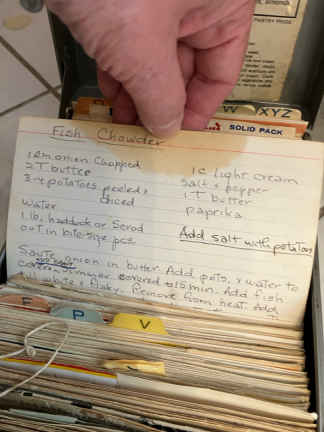 WXYZ
SOLID PACK
Fish Chowder
1 sm onion Chopped
2 T butter
3-4 potatoes peeled &
diced
Water
1 lb. haddock or Scrod
cut in bite size pcs.
1 c light cream
Salt & pepper
1 T butter
paprika
Add salt with potatoes
Saute onion in butter. Add pots. & water to
cover. Simmer covered 15 min. Add fish
till white & flaky. Remove from heat. Add
F
P
V